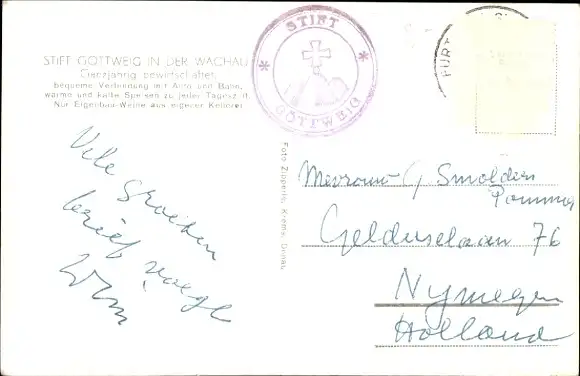 STIFT GÖTTWEIG IN DER WACHAU
Ganzjährig bewirtschaftet,
bequeme Verbindung mit Auto und Bahn,
warme und kalte Speisen zu jeder Tageszeit
Nur Eigenbau-Weine aus eigener Kellerei
* STIFT *
GÖTTWEIG
FURT
Vele groeten
brief volgt
Wim
Foto Zipperle, Krems, Donau
Mevrouw Smolders
Nymegen
Holland
76